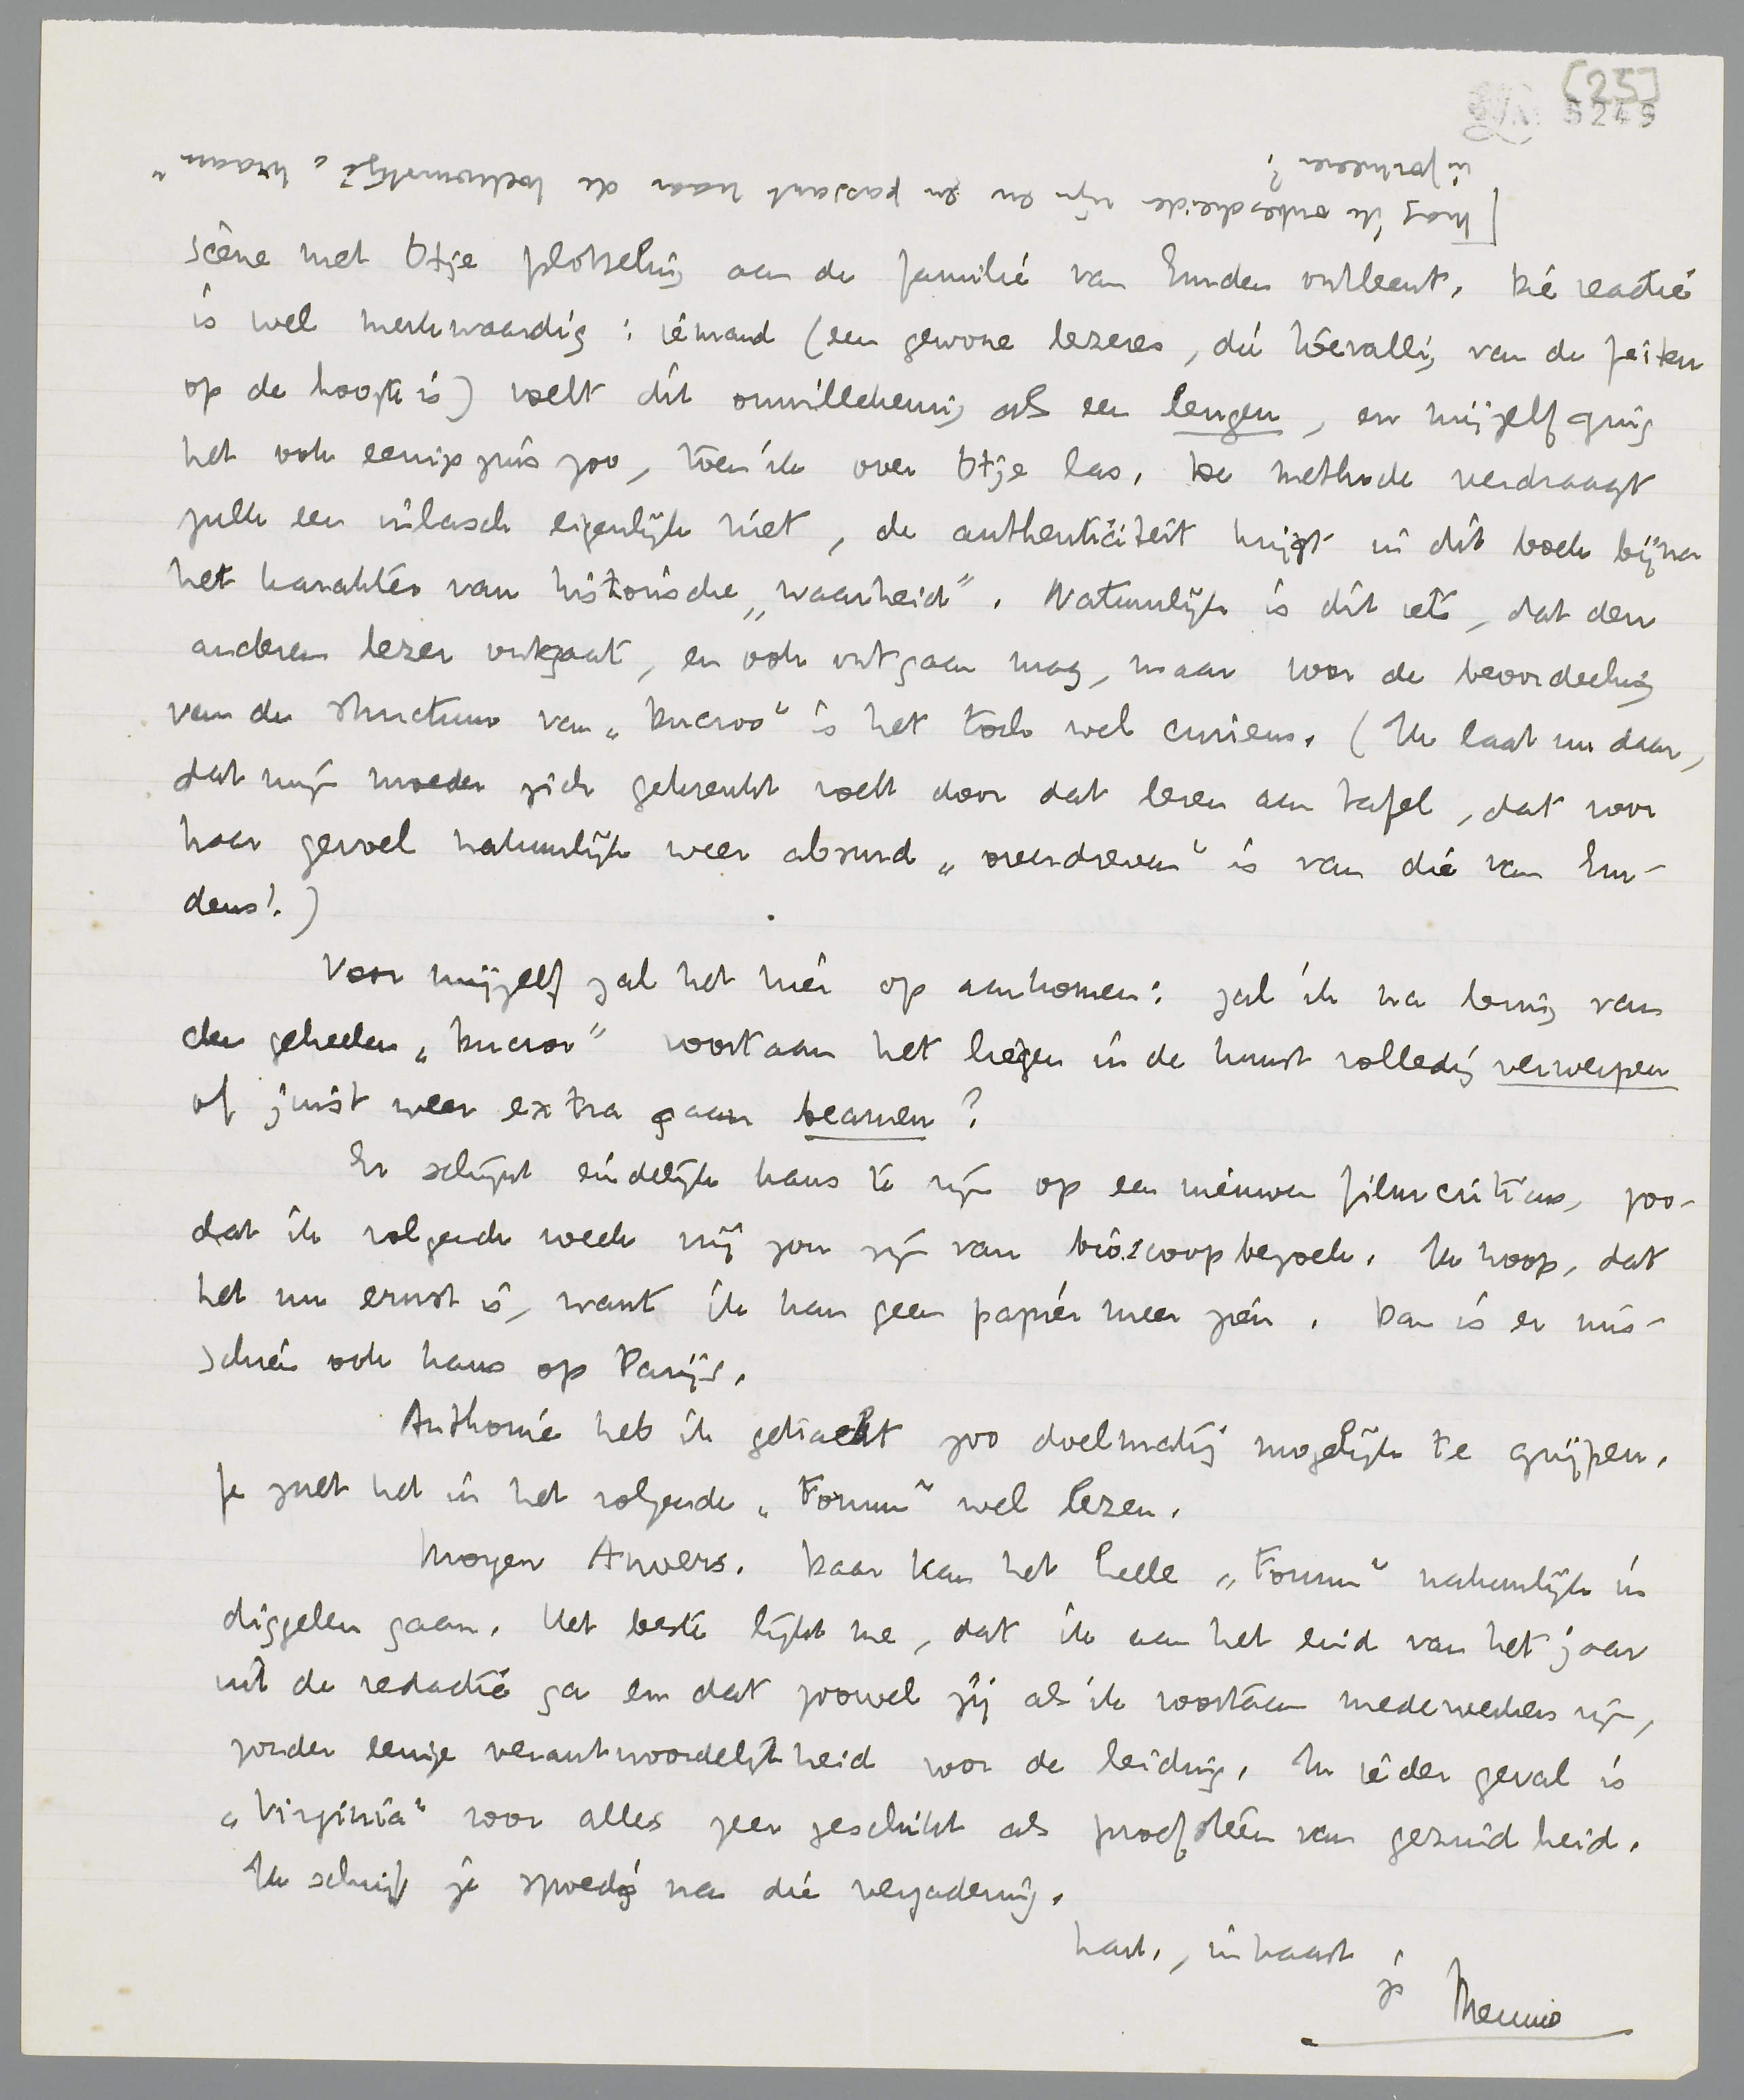 [25]
5249
[Mag ik onbescheiden zijn en en passant naar de toekomstige „kraam"
informeeren?
scène met Otje plotseling aan de familie van Emden ontleent. Die reactie
is wel merkwaardig: iemand (een gewone lezeres, die toevallig van de feiten
op de hoogte is) voelt dit onwillekeurig als een leugen, en mijzelf ging
het ook eenigszins zoo, toen ik over Otje las. De methode verdraagt
zulk een inlasch eigenlijk niet, de authenticiteit krijgt in dit boek bijna
het karakter van historische „waarheid". Natuurlijk is dit iets, dat den
anderen lezer ontgaat, en ook ontgaan mag, maar voor de beoordeeling
van de structuur van „Ducroo" is het toch wel curieus. (Ik laat nu daar,
dat mijn moeder zich gekrenkt voelt door dat lezen aan tafel, dat voor
haar gevoel natuurlijk weer absurd „overdreven" is van die van Em-
dens!.)
Voor mijzelf zal het hier op aankomen: zal ik na lezing van
den geheelen „Ducroo" voortaan het liegen in de kunst volledig verwerpen
of juist weer extra gaan beamen?
Er schijnt eindelijk kans te zijn op een nieuwen filmcriticus, zoo-
dat ik volgende week vrij zou zijn van bioscoopbezoek. Ik hoop, dat
het nu ernst is, want ik kan geen papier meer zien. Dan is er mis-
schien ook kans op Parijs.
Anthonie heb ik getracht zoo doelmatig mogelijk te grijpen.
Je zult het in het volgende „Forum" wel lezen.
Morgen Anvers. Daar kan het heele „Forum" natuurlijk in
diggelen gaan. Het beste lijkt me, dat ik aan het eind van het jaar
uit de redactie ga en dat zoowel jij als ik voortaan medewerkers zijn,
zonder eenige verantwoordelijkheid voor de leiding. In ieder geval is
„Virginia" voor alles zeer geschikt als proefsteen van gezondheid.
Ik schrijf je spoedig na die vergadering.
hart., in haast
je Menno